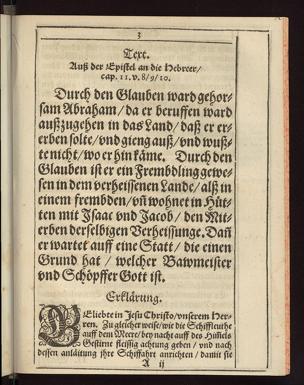 3
Text.
Auß der Epistel an die Hebreer/
cap. 11. v. 8/9/10.
Durch den Glauben ward gehor-
sam Abraham/ da er beruffen ward
außzugehen in das Land/ daß er er-
erben solte/ vnd gieng auß/ vnd wuß-
te nicht/ wo er hin käme. Durch den
Glauben ist er ein Frembdling gewe-
sen in dem verheissenen Lande/ alß in
einem frembden/ vñ wohnet in Hüt-
ten mit Isaac vnd Jacob/ den Mit-
erben derselbigen Verheissunge. Dañ
er wartet auff eine Statt/ die einen
Grund hat/ welcher Bawmeister
vnd Schöpffer Gott ist.
Erklärung.
GEliebte in Jesu Christo/ vnserem Her-
ren. Zu gleicher weiß/ wie die Schiffleuthe
auff dem Meere/ bey nacht auff des Hiṁels
Gestirne fleissig achtung geben/ vnd nach
dessen anläitung ihre Schiffahrt anrichten/ damit sie
A ij